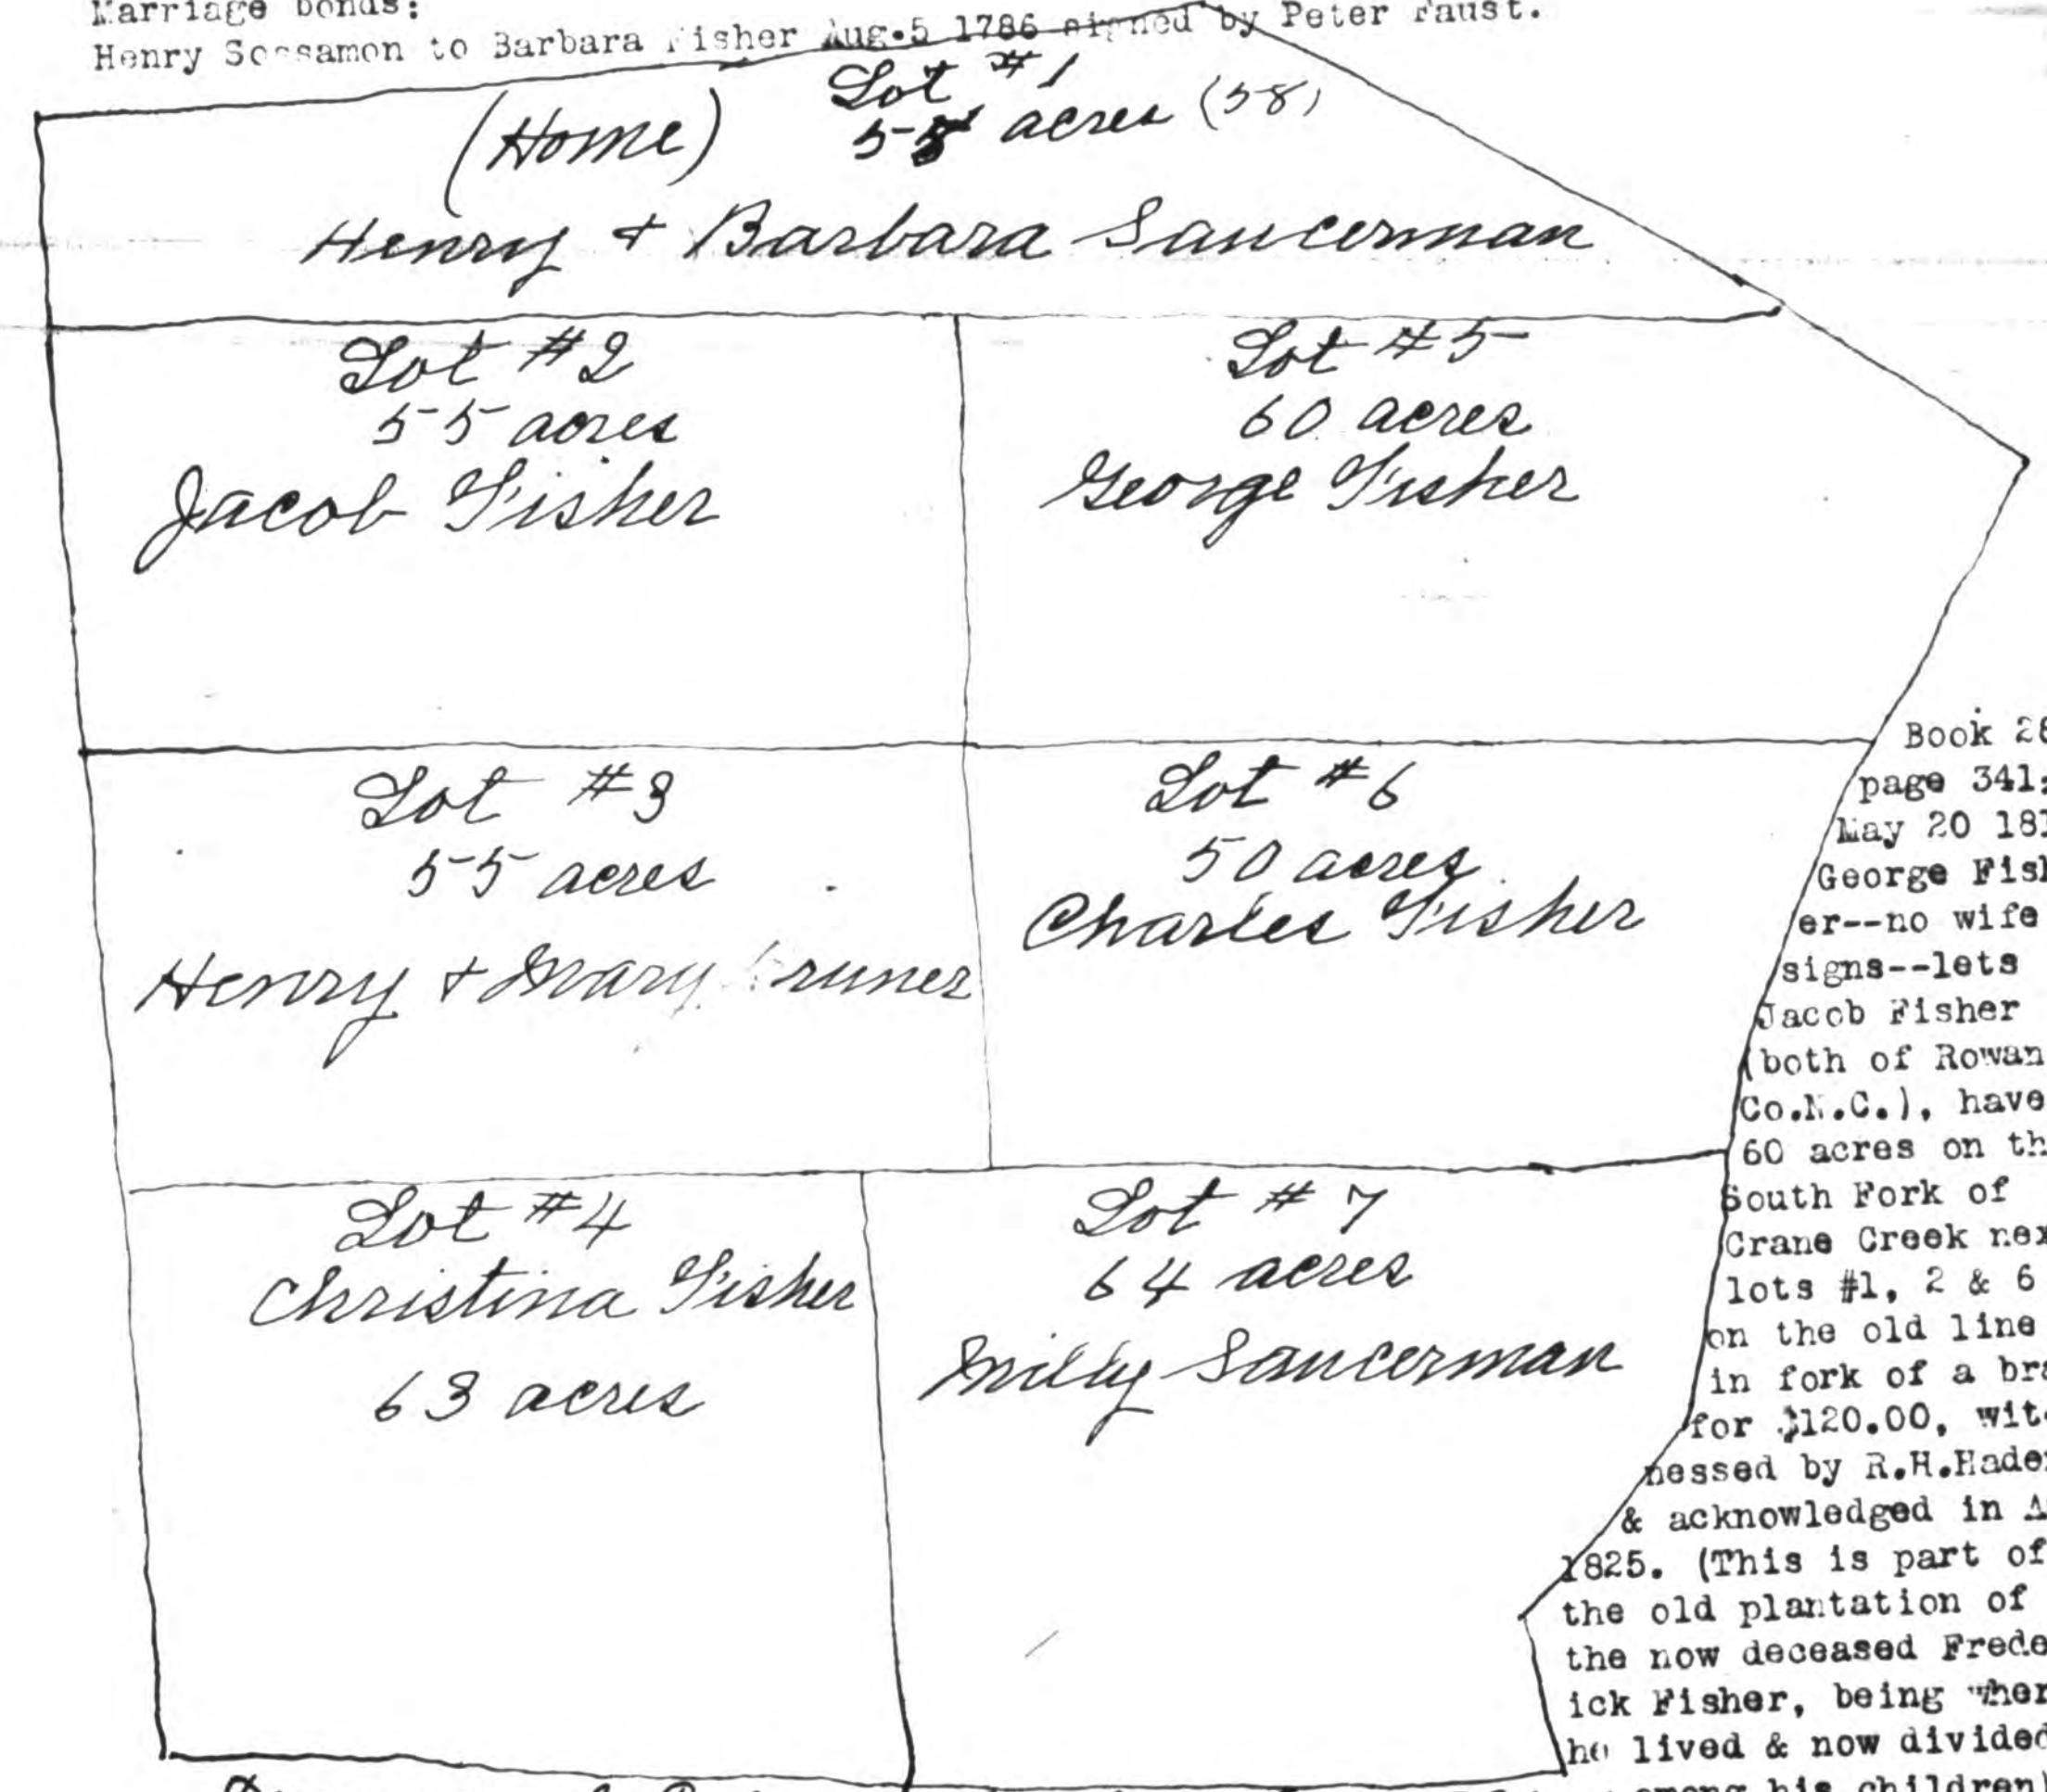 Marriage bonds:
Henry Sossamon to Barbara Fisher Aug.5 1786 signed by Peter Faust.
Lot #1
(Home) acres (58)
Henry + Barbara Saucerman
Lot #2
55 acres
Jacob Fisher
Lot #5
60 acres
George Fisher
Lot #3
55 acres
Henry + Mary
Lot #6
50 acres
Charles Fisher
Lot #4
Christina Fisher
63 acres
Lot #7
64 acres
Milly Saucerman
Book 28
page 341:
May 20 181
George Fish
er--no wife
signs--lets
Jacob Fisher
(both of Rowan
Co.N.C.), have
60 acres on th
South Fork of
Crane Creek nex
lots #1, 2 & 6
on the old line
in fork of a bra
for $120.00, wit-
nessed by R.H.Haden
& acknowledged in A
1825. (This is part of
the old plantation of
the now deceased Frede
ick Fisher, being wher
he lived & now divided
among his children)